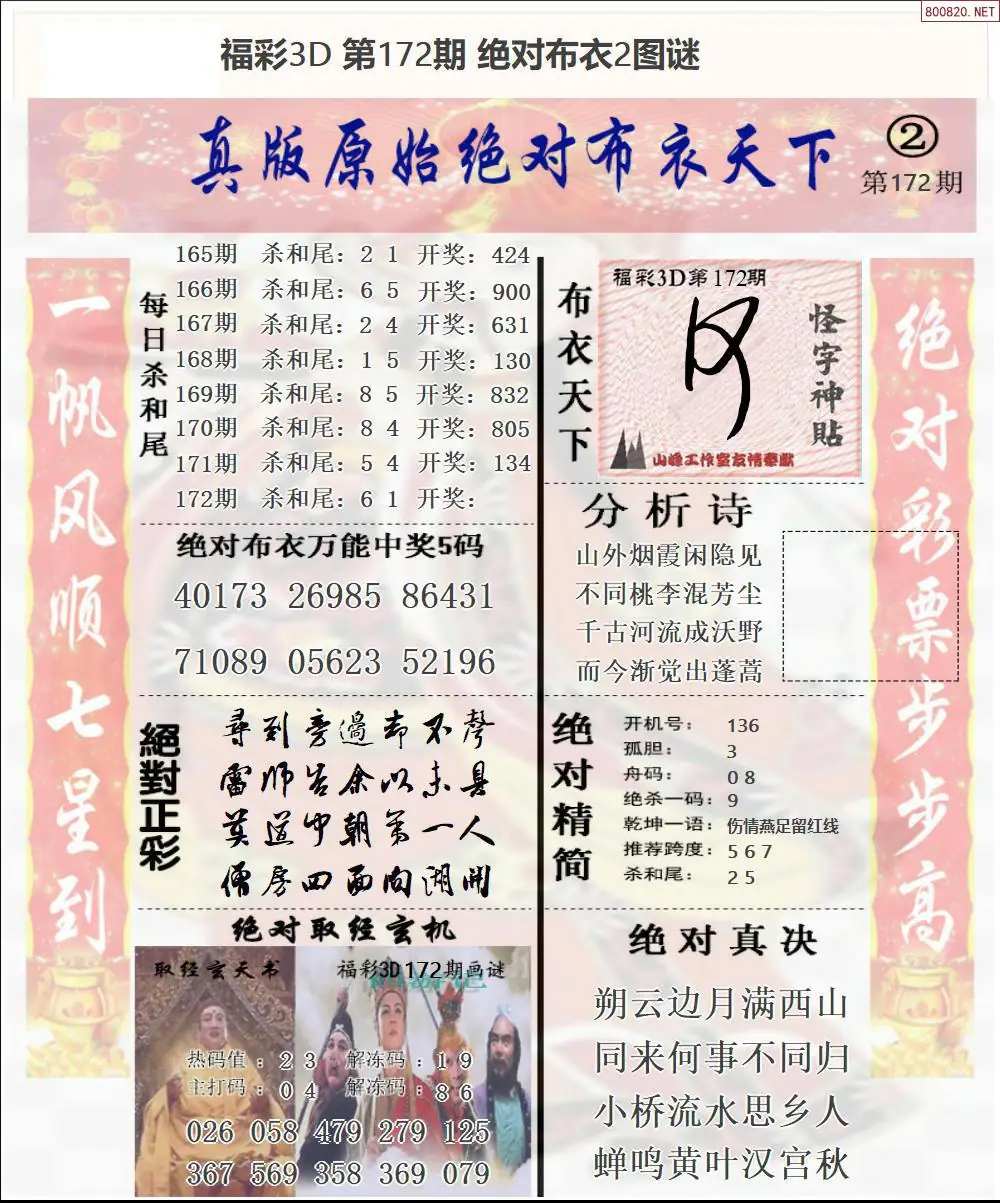 800820.NET
福彩3D 第172期 绝对布衣2图谜
真版原始绝对布衣天下
②
第172期
一帆风顺七星到
每日杀和尾
165期 杀和尾：2 1 开奖：424
166期 杀和尾：6 5 开奖：900
167期 杀和尾：2 4 开奖：631
168期 杀和尾：1 5 开奖：130
169期 杀和尾：8 5 开奖：832
170期 杀和尾：8 4 开奖：805
171期 杀和尾：5 4 开奖：134
172期 杀和尾：6 1 开奖：
绝对布衣万能中奖5码
40173 26985 86431
71089 05623 52196
絕對正彩
尋到旁邊却不聲
雷师告余以未具
莫道中朝第一人
僧房四面向湖開
绝对取经玄机
取经玄天书
福彩3D172期画谜
热码值：2 3 解冻码：1 9
主打码：0 4 解冻码：8 6
026 058 479 279 125
367 569 358 369 079
布衣天下
福彩3D第172期
怪字神贴
山峰工作室友情奉献
分析诗
山外烟霞闲隐见
不同桃李混芳尘
千古河流成沃野
而今渐觉出蓬蒿
绝对精简
开机号：136
孤胆：3
舟码：0 8
绝杀一码：9
乾坤一语：伤情燕足留红线
推荐跨度：5 6 7
杀和尾：2 5
绝对真决
朔云边月满西山
同来何事不同归
小桥流水思乡人
蝉鸣黄叶汉宫秋
绝对彩票步步高